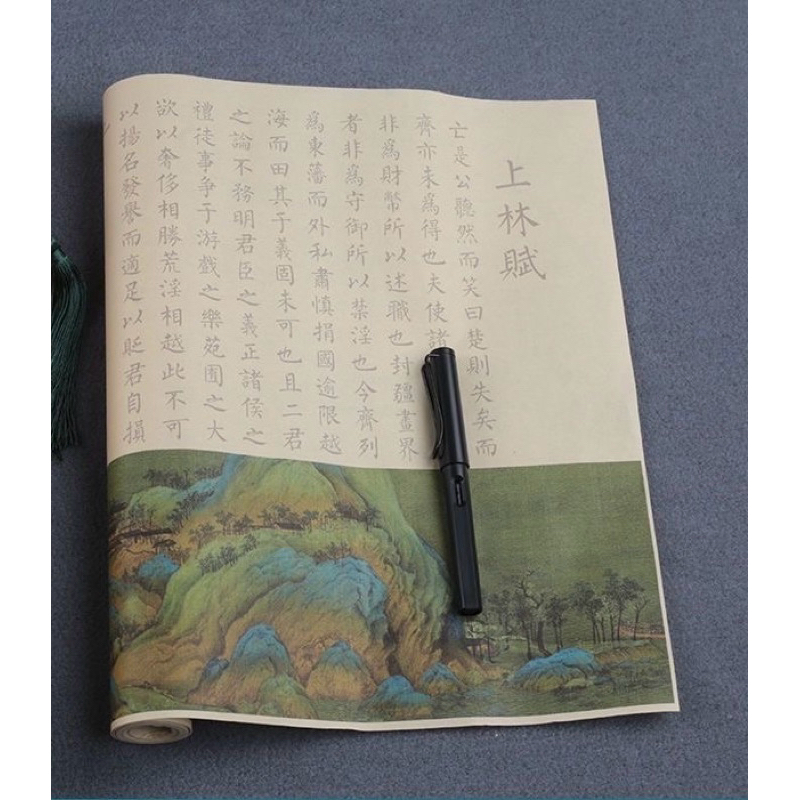 上林賦
亡是公聽然而笑曰楚則失矣而
齊亦未爲得也夫使諸
非爲財幣所以述職也封疆畫界
者非爲守御所以禁淫也今齊列
爲東藩而外私肅慎捐國逾限越
海而田其于義固未可也且二君
之論不務明君臣之義正諸侯之
禮徒事争于游戲之樂苑囿之大
欲以奢侈相勝荒淫相越此不可
以揚名發譽而適足以貶君自損